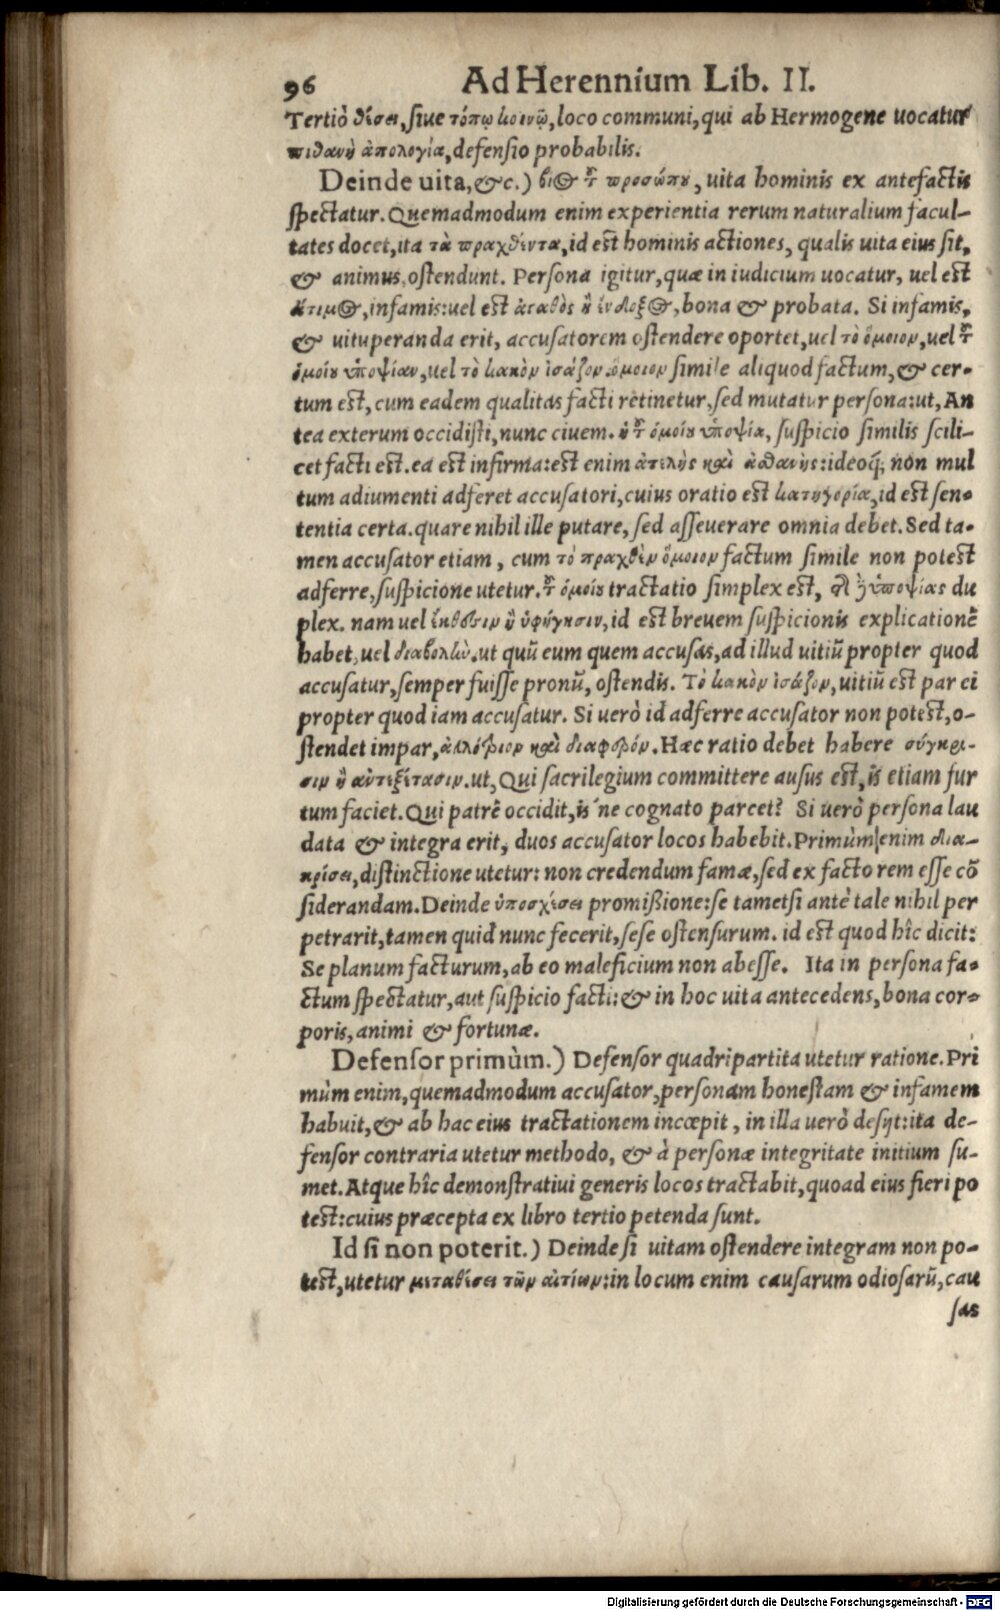 96 Ad Herennium Lib. II.
Tertiò θέσει, siue τόπῳ κοινῷ, loco communi, qui ab Hermogene uocatur
πιθανὴ ἀπολογία, defensio probabilis.
Deinde uita, &c.) βι⊕ τ̃ προσώπου, uita hominis ex antefactis
spectatur. Quemadmodum enim experientia rerum naturalium facul-
tates docet, ita τὰ πραχθέντα, id est hominis actiones, qualis uita eius sit,
& animus, ostendunt. Persona igitur, quæ in iudicium uocatur, uel est
ἄτιμ⊕, infamis: uel est ἀγαθὸς ἢ ἔνδοξ⊕, bona & probata. Si infamis,
& uituperanda erit, accusatorem ostendere oportet, uel τὸ ὅμοιον, uel τ̃
ὁμοίου ὑποψίαν, uel τὸ κακὸν ἰσάζον. ὅμοιον simile aliquod factum, & cer-
tum est, cum eadem qualitas facti retinetur, sed mutatur persona: ut, An
tea exterum occidisti, nunc ciuem. ἡ τ̃ ὁμοίου ὑποψία, suspicio similis scili-
cet facti est. ea est infirma: est enim ἀτελὴς καὶ ἀσθανὴς: ideoq́; non mul
tum adiumenti adferet accusatori, cuius oratio est κατηγορία, id est sen-
tentia certa. quare nihil ille putare, sed asseuerare omnia debet. Sed ta-
men accusator etiam, cum τὸ πραχθὲν ὅμοιον factum simile non potest
adferre, suspicione utetur. τ̃ ὁμοίου tractatio simplex est, ὑποψίας du
plex. nam uel ἔκθεσιν ἢ ὑφήγησιν, id est breuem suspicionis explicationē
habet, uel διαβολὼ. ut quū eum quem accusas, ad illud uitiū propter quod
accusatur, semper fuisse pronū, ostendis. Τὸ κακὸν ἰσάζον, uitiū est par ei
propter quod iam accusatur. Si uerò id adferre accusator non potest, o-
stendet impar, ἀλλότριον καὶ διαφορόν. Hæc ratio debet habere σύγκρι-
σιν ἢ αὐτεξέτασιν. ut, Qui sacrilegium committere ausus est, is etiam fur
tum faciet. Qui patrē occidit, is ne cognato parcet? Si uerò persona lau
data & integra erit, duos accusator locos habebit. Primùm enim δια-
κρίσει, distinctione utetur: non credendum famæ, sed ex facto rem esse cō
siderandam. Deinde ὑποσχέσει promißione: se tametsi antè tale nihil per
petrarit, tamen quid nunc fecerit, sese ostensurum. id est quod hîc dicit:
Se planum facturum, ab eo maleficium non abesse. Ita in persona fa-
ctum spectatur, aut suspicio facti: & in hoc uita antecedens, bona cor-
poris, animi & fortunæ.
Defensor primùm.) Defensor quadripartita utetur ratione. Pri
mùm enim, quemadmodum accusator, personam honestam & infamem
habuit, & ab hac eius tractationem incœpit, in illa uerò desijt: ita de-
fensor contraria utetur methodo, & à personæ integritate initium su-
met. Atque hîc demonstratiui generis locos tractabit, quoad eius fieri po
test: cuius præcepta ex libro tertio petenda sunt.
Id si non poterit.) Deinde si uitam ostendere integram non po-
test, utetur μεταθέσει τῶν αἰτίων: in locum enim causarum odiosarū, cau
sas
Digitalisierung gefördert durch die Deutsche Forschungsgemeinschaft - DFG